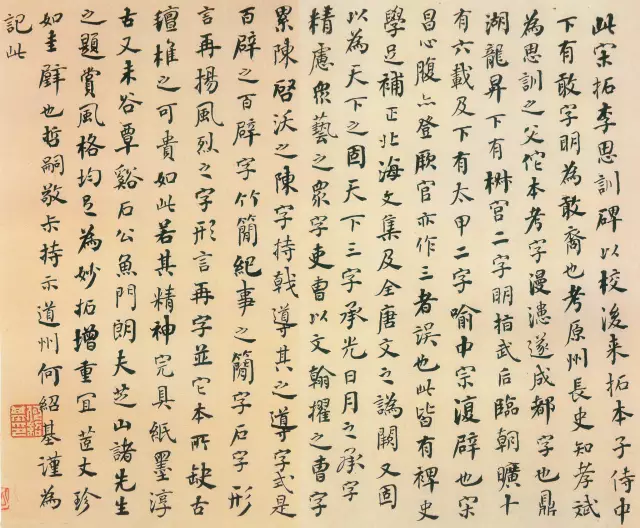 此宋拓李思訓碑以校後来拓本子侍中
下有敢字明為敢裔也考原州長史知孝斌
為思訓之父佗本考字漫漶遂成都字也鼎
湖龍昇下有梸宫二字明指武后臨朝曠十
有六載及下有太甲二字喻中宗復辟也宋
昌心腹亦登厥官亦作三者誤也此皆有裨史
學足補正北海文集及全唐文之譌闕又固
以為天下之固天下三字承光日月之承字
精慮衆藝之衆字吏曹以文翰擢之曹字
累陳啓沃之陳字持戟導其之導字式是
百辟之百辟字竹簡紀事之簡字石字形
言再揚風烈之字形言再字並它本所缺古
氊椎之可貴如此若其精神完具紙墨淳
古又未谷覃谿石公魚門朗夫芝山諸先生
之題賞風格均足為妙拓增重宜荎丈珍
如圭璧也哲嗣敬示持示道州何紹基謹為
記此